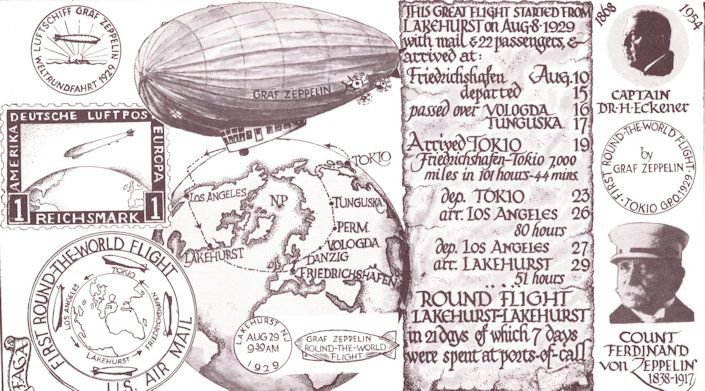 LUFTSCHIFF GRAF ZEPPELIN
WELTRUNDFAHRT 1929
DEUTSCHE LUFTPOST
AMERIKA
EUROPA
1 REICHSMARK 1
FIRST ROUND-THE-WORLD FLIGHT
U.S. AIR MAIL
TOKIO
LOS ANGELES
FRIEDRICHSHAFEN
LAKEHURST
GRAF ZEPPELIN
TOKIO
LOS ANGELES
NP
TUNGUSKA
PERM
VOLOGDA
LAKEHURST
DANZIG
FRIEDRICHSHAFEN
LAKEHURST NJ
AUG 29
9:30 AM
1929
GRAF ZEPPELIN
ROUND-THE-WORLD
FLIGHT
THIS GREAT FLIGHT STARTED FROM
LAKEHURST on AUG•8•1929
with mail & 22 passengers, &
arrived at:
Friedrichshafen Aug. 10
departed 15
passed over VOLOGDA 16
TUNGUSKA 17
Arrived TOKIO 19
Friedrichshafen-Tokio 7,000
miles in 101 hours-44 mins.
dep. TOKIO 23
arr. LOS ANGELES 26
80 hours
dep. LOS ANGELES 27
arr. LAKEHURST 29
51 hours
ROUND FLIGHT
LAKEHURST-LAKEHURST
in 21 days of which 7 days
were spent at ports-of-call
1868 1954
CAPTAIN
DR•H•Eckener
FIRST ROUND-THE-WORLD FLIGHT
by
GRAF ZEPPELIN
TOKIO G.P.O. 1929
COUNT
FERDINAND
von ZEPPELIN
1838-1917